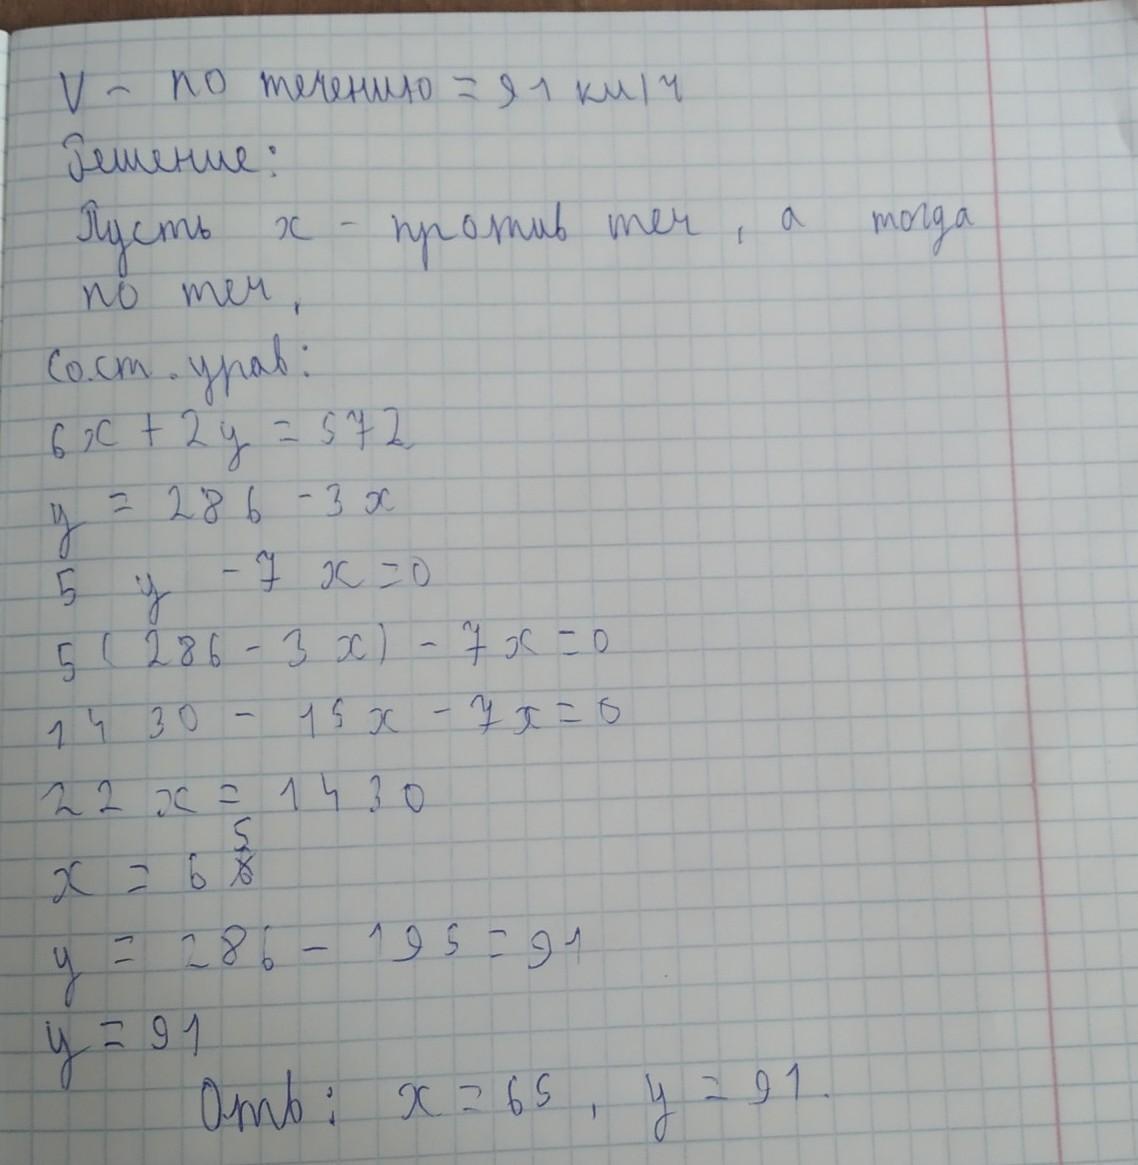 V - по течению = 91 км/ч
Решение:
Пусть x - против теч, а тогда
по теч,
Сост. урав:
6x + 2y = 572
y = 286 - 3x
5 y - 7 x = 0
5 ( 286 - 3 x) - 7x = 0
1430 - 15x - 7x = 0
22 x = 1430
x = 65
y = 286 - 195 = 91
y = 91
Отв: x = 65, y = 91.